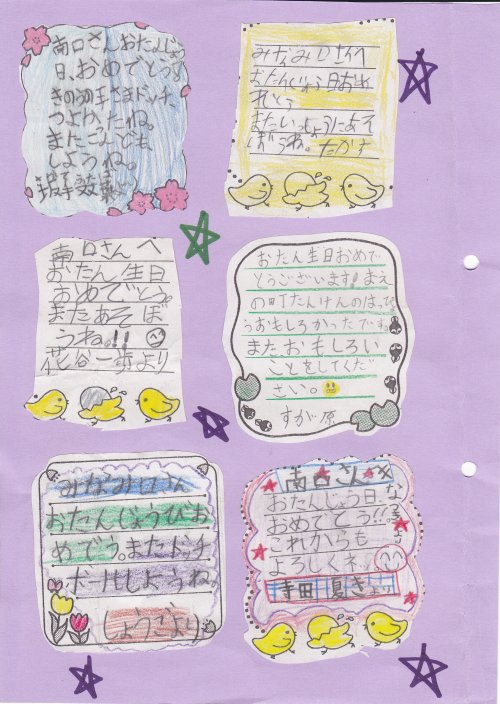 南口さんおたんじょう
日、おめでとう!
きのうの王さまドッチ
つよかったね。
またこんども
しようね。
みなみ口さんへ
おたんじょう日おめ
でとう
またいっしょうにあそ
ぼうね。たかす
南口さんへ
おたん生日
おめでとう。
またあそぼ
うね。!!
花谷一歩より
おたん生日おめで
とうございます!まえ
の町たんけんのはっぴょ
うおもしろかったですね
またおもしろい
ことをしてくだ
さい。
すが原
みなみ口さん
おたんじょうびお
めでとう。またドッチ
ボールしようね。
しょうごより
南口さんへ
おたんじょう日
おめでとう!!
これからも
よろしくネッ
寺田 夏きより